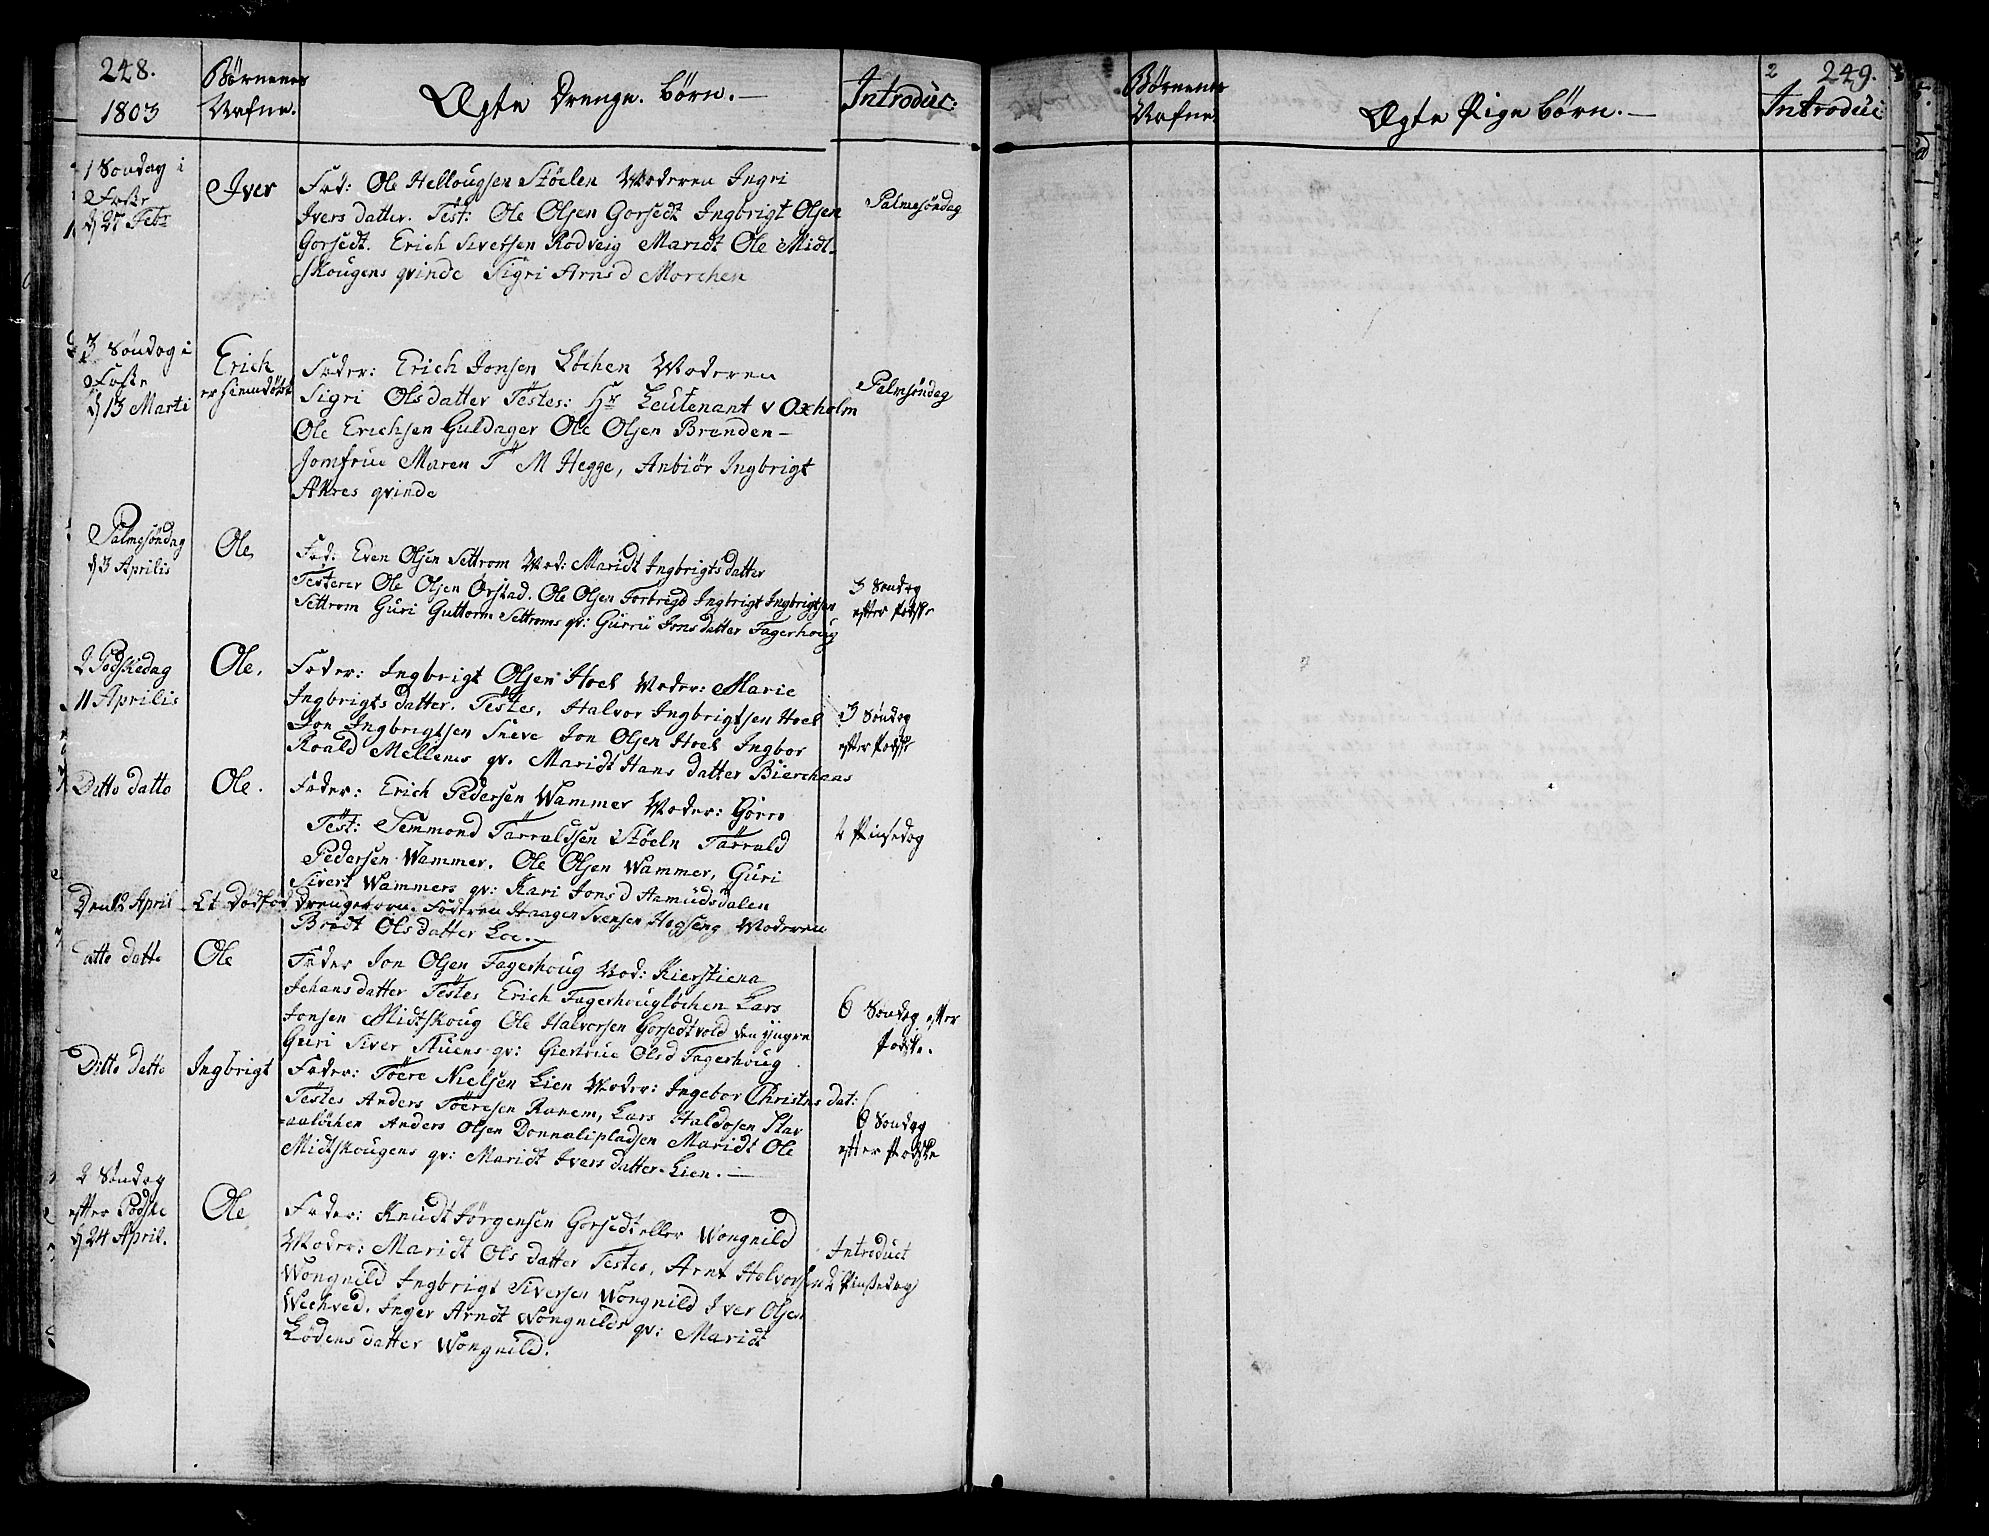 248.
1803
Børnenes
Nafne.
Ægte Drenge. børn. —
Introduc:
1 Søndag i
Faste
d 27 Febr
Iver
Fad: Ole Hellougsen Støelen Moderen Ingri
Ivers datter. Test: Ole Olsen Gorsedt Ingbrigt Olsen
Gorsedt. Erich Sivertsen Rodveig Maridt Ole Midt-
skougens qvinde Sigri Arnsd Morchen
Palmesøndag
3 Søndag i
Faste
d 13 Marti
Erich
er hiemdøbt
Fader: Erich Jonsen Løchen Moderen
Sigri Olsdatter Testes: Hr Leutenant v Oxholm
Ole Erichsen Guldager Ole Olsen Brenden —
Jomfrue Maren T M Hegge, Anbiør Ingbrigt
Akres qvinde
Palmsøndag
Palmesøndag
d 3 Aprilis
Ole
Fad: Even Olsen Settrom Mod: Maridt Ingbrigtsdatter
Testerer Ole Olsen Ørstad. Ole Olsen Forbrigd Ingbrigt Ingbrigtsen
Settrom Guri Guttorm Settroms qv: Gurru Jonsdatter Fagerhoug
3 Søndag
efter Paaske
2 Paaskedag
11 Aprilis
Ole.
Fader: Ingbrigt Olsen Hoel Moder: Marie
Ingbrigts datter. Testes. Halvor Ingbrigtsen Hoel
Jon Ingbrigtsen Sneve Jon Olsen Hoel Ingbor
Roald Mellemes qv. Maridt Hans datter Bierchaas
3 Søndag
efter Paaske
Ditto datto
Ole.
Fader: Erich Pedersen Wammer Moder: Gørro
Test: Semmond Tarraldsen Støeln Tarrald
Pedersen Wammer. Ole Olsen Wammer, Guri
Sivert Wammers qv: Kari Jonsd Aamudsdalen
2 Pinsedag
Den 12 April
Et Dødfød Drengebørn. Fadren Haagen Svensen Hogseng Moderen
Brødt Olsdatter Loe. —
Datto datto
Ole
Fader Jon Olsen Fagerhoug Mod: Kierstiena
Johansdatter Testes Erich Fagerhougløchen Lars
Jonsen Midtskoug Ole Halvorsen Gorsedtvold den yngre
Guri Siver Stuens qv: Giertrue Olsd Fagerhoug
6 Søndag efter
Paaske.
Ditto datto
Ingbrigt
Fader: Toere Nielsen Lien Moder: Ingebor Christens dat:
Testes Anders Toeresen Ranem, Lars Haldosen Stav
aaløchen Anders Olsen Donnalipladsen Maridt Ole
Midtskougens qv: Maridt Ivers datter Lien. —
6 Søndag
efter Paaske
2 Søndag
efter Paaske
d 24 April.
Ole
Fader: Knudt Jørgensen Gorsedt eller Wongnild
Moder: Maridt Ols datter Testes. Arnt Halvorsen
Wongnild Ingbrigt Siversen Wongnild Iver Olsen
Wechved. Inger Arndt Wongnilds qv: Maridt
Lodens datter Wongnild.
Introduct
2 Pinsedag
249.
Børnenes
Nafne.
Ægte Pige børn. —
Introduc: